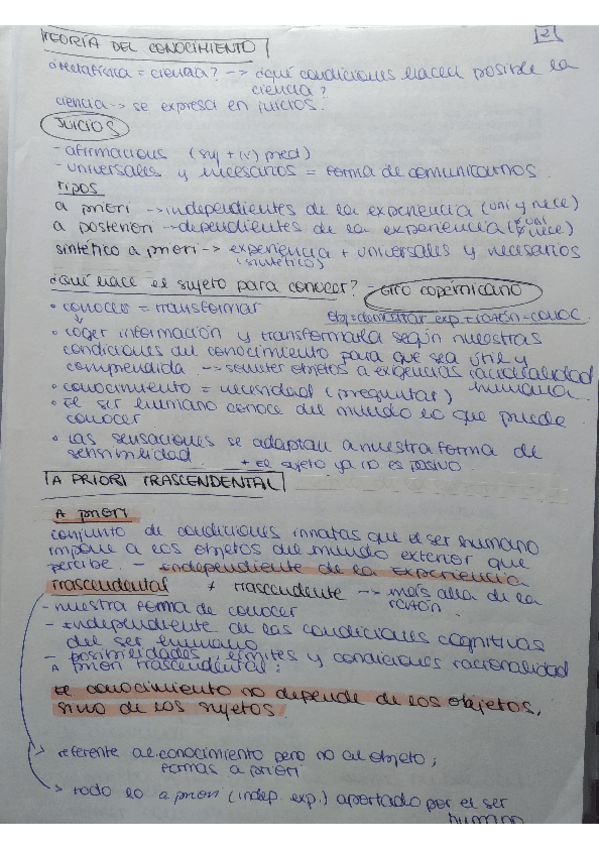 TEORÍA DEL CONOCIMIENTO
2
¿Metafísica = ciencia? --> ¿qué condiciones hacen posible la
ciencia?
ciencia -> se expresa en juicios.
JUICIOS
- afirmaciones (suj + (v) pred)
- universales y necesarios = forma de comunicarnos.
TIPOS
a priori -> independientes de la experiencia (uni y nece)
a posteriori -> dependientes de la experiencia (≠ uni
≠ nece)
sintético a priori -> experiencia + universales y necesarios
(sintético)
¿Qué hace el sujeto para conocer? - Giro copernicano
• conocer = transformar
Obj = demostrar exp + razón = conoc.
• coger información y transformarla según nuestras
condiciones del conocimiento para que sea útil y
comprendida --> someter objetos a exigencias racionalidad
humana.
• conocimiento = necesidad (preguntar)
• El ser humano conoce del mundo lo que puede
conocer
• Las sensaciones se adaptan a nuestra forma de
sensibilidad + El sujeto ya no es pasivo.
A PRIORI TRASCENDENTAL
A priori
conjunto de condiciones innatas que el ser humano
impone a los objetos del mundo exterior que
percibe. - Independiente de la Experiencia
Trascendental ≠ trascendente --> más allá de la
razón.
- nuestra forma de conocer
- Independiente de las condiciones cognitivas
del ser humano
- posibilidades, límites y condiciones racionalidad
A priori trascendental:
El conocimiento no depende de los objetos,
sino de los sujetos.
> referente al conocimiento pero no al objeto;
formas a priori
> todo lo a priori (indep. exp.) aportado por el ser
humano